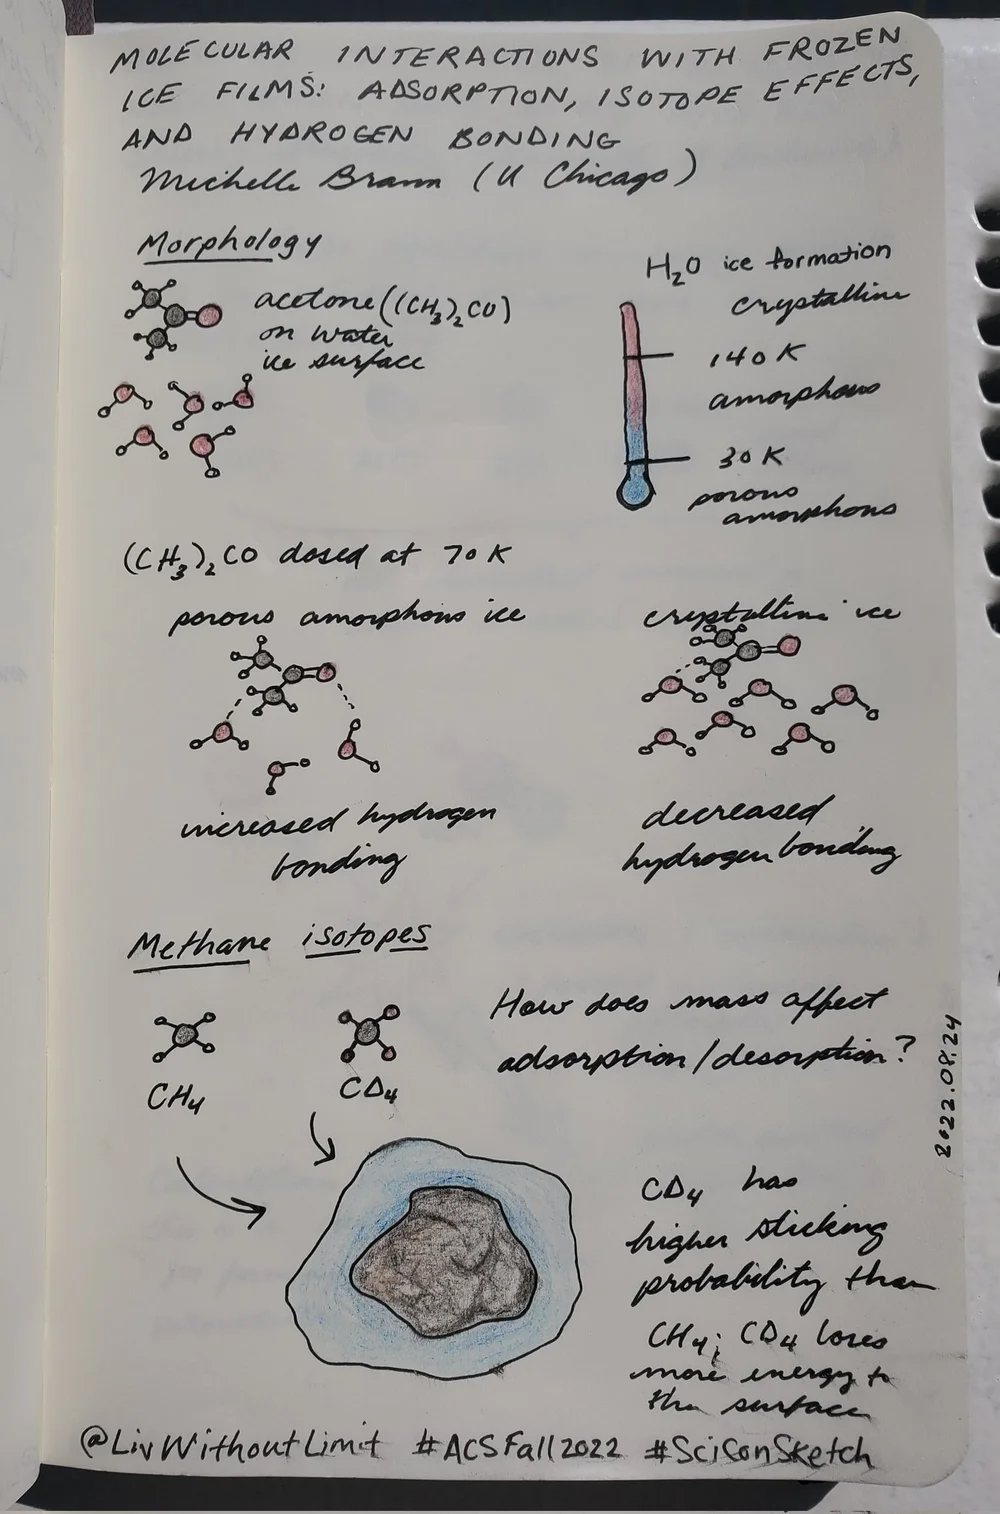 MOLECULAR INTERACTIONS WITH FROZEN
ICE FILMS: ADSORPTION, ISOTOPE EFFECTS,
AND HYDROGEN BONDING
Michelle Brann (U Chicago)
Morphology
acetone ((CH₃)₂CO)
on water
ice surface
H₂O ice formation
crystalline
140 K
amorphous
30 K
porous
amorphous
(CH₃)₂CO dosed at 70 K
porous amorphous ice
increased hydrogen
bonding
crystalline ice
decreased
hydrogen bonding
Methane isotopes
CH₄
CD₄
How does mass affect
adsorption/desorption?
CD₄ has
higher sticking
probability than
CH₄; CD₄ loses
more energy to
the surface
2022.08.24
@LivWithoutLimit #ACSFall2022 #SciConSketch